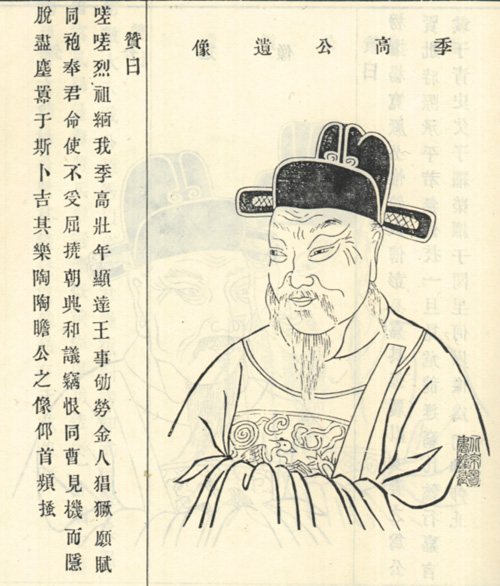 季高公遺像
贊曰
嗟嗟烈祖緬我季高壯年顯達王事劬勞金人猖獗願賦
同袍奉君命使不受屈撓朝典和議竊恨同曹見機而隱
脫盡塵囂于斯卜吉其樂陶陶瞻公之像仰首頻搔